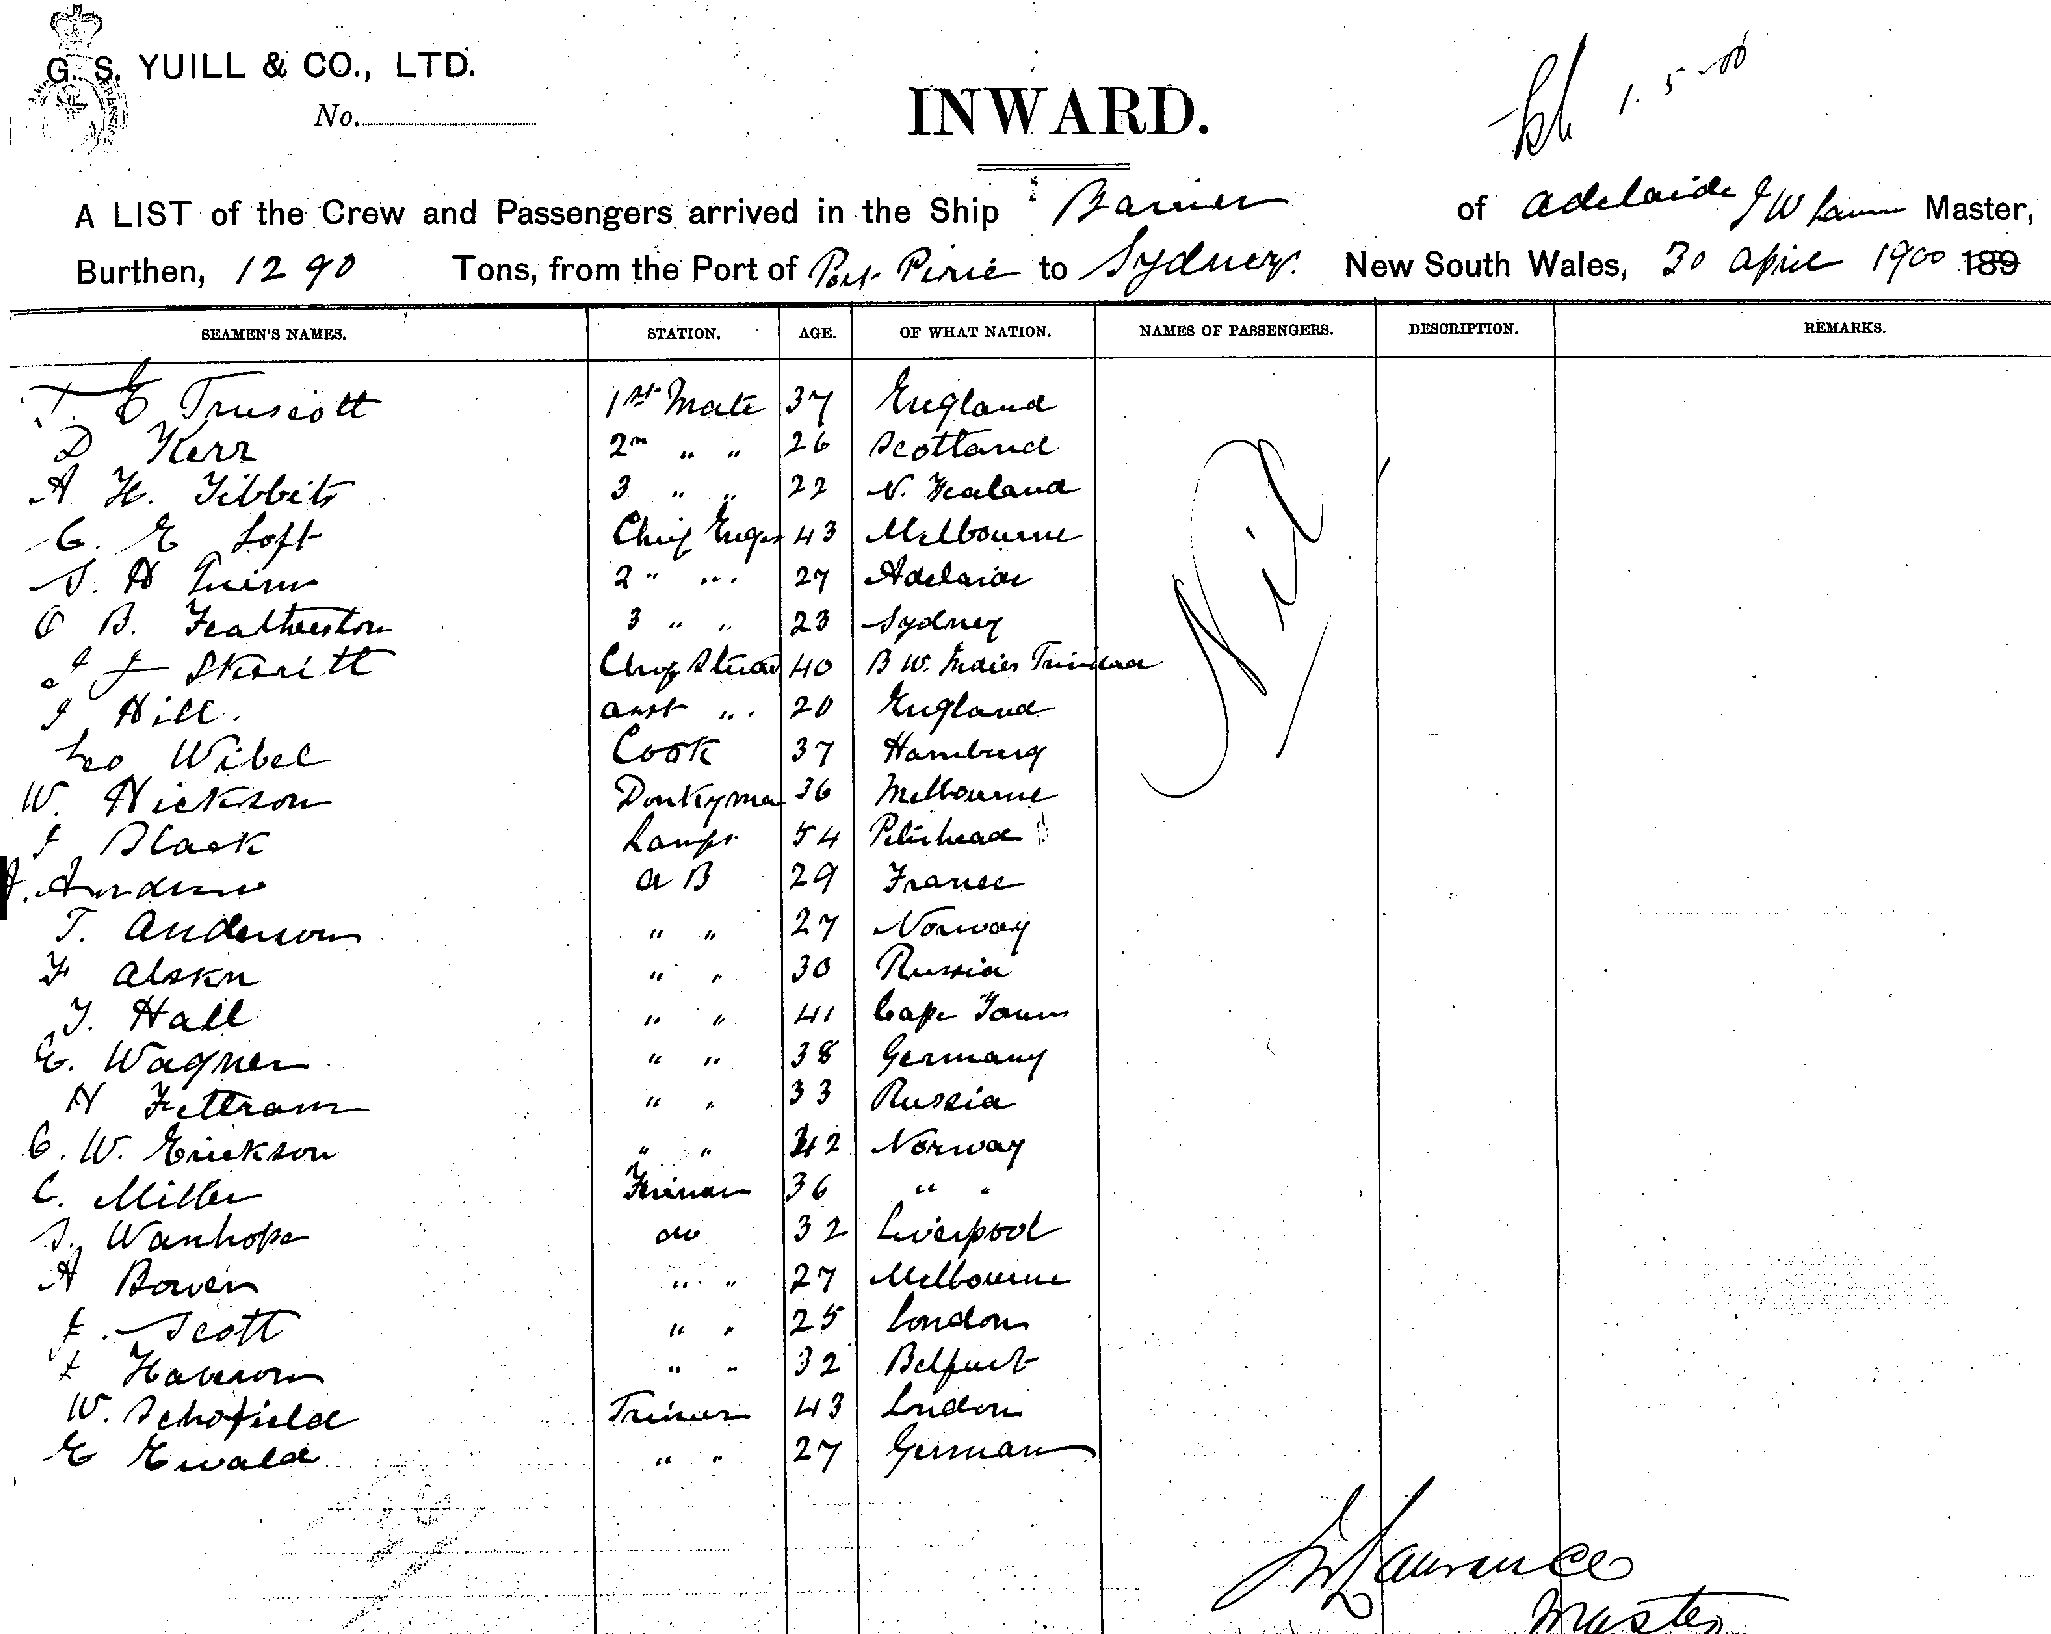 G. S. YUILL & CO., LTD.
No.
INWARD.
1. 5 - 00
A LIST of the Crew and Passengers arrived in the Ship "Barrier of Adelaide J W Master,
Burthen, 1290 Tons, from the Port of Port Pirie to Sydney. New South Wales, 30 April 1900 189
SEAMEN'S NAMES. STATION. AGE. OF WHAT NATION. NAMES OF PASSENGERS. DESCRIPTION. REMARKS.
T. E Truscott 1st Mate 37 England
D Kerr 2nd " " 26 Scotland
A H. Tibbits 3 " " 22 N. Zealand
C. E Loft Chief Engr 43 Melbourne
S. H Quinn 2 " " 27 Adelaide
O B. Featherston 3 " " 23 Sydney
J J Skeritt Chief Steward 40 B W. Indies Trinidad
J Hill. asst " 20 England
Leo Wibel Cook 37 Hamburg
W. Hickson Donkyman 36 Melbourne
J Black Lamps 54 Peterhead
A B 29 France
T. Anderson " " 27 Norway
F " " 30 Russia
J. Hall " " 41 Cape Town
E. Wagner " " 38 Germany
H " " 33 Russia
C. W. Erickson " " 42 Norway
C. Miller Fireman 36 " "
S. Wanhope do 32 Liverpool
A Bowen " " 27 Melbourne
J. Scott " " 25 London
" " 32 Belfast
W. Schofield Trimer 43 London
E Ewald " " 27 German
Nil
J W Lawrance
Master